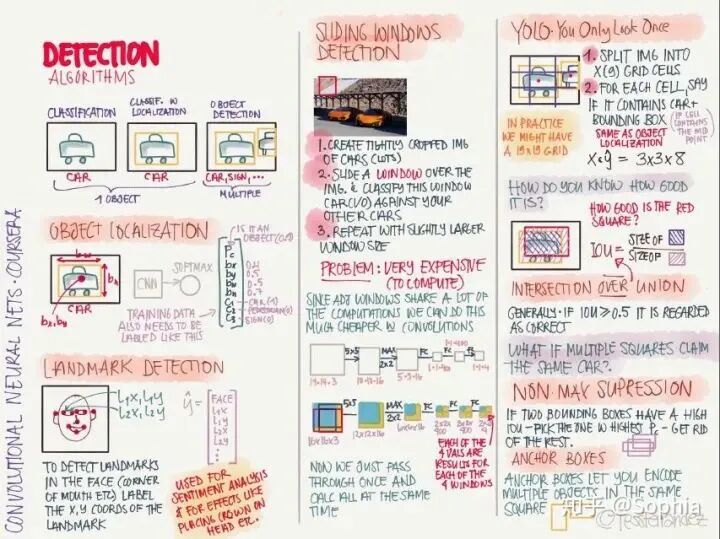 CONVOLUTIONAL NEURAL NETS · COURSERA
DETECTION
ALGORITHMS
CLASSIFICATION
CLASSIF. W
LOCALIZATION
OBJECT
DETECTION
CAR
CAR
CAR, SIGN, ...
1 OBJECT
MULTIPLE
OBJECT LOCALIZATION
IS IT AN
OBJECT (0,1)
bw
bh
bx,by
CAR
CNN
SOFTMAX
Pc
bx
by
bh
bw
C1
C2
C3
0.4
0.5
0.5
0.7
CAR (1)
PEDESTRIAN (0)
SIGN (0)
TRAINING DATA
ALSO NEEDS TO BE
LABLED LIKE THIS
LANDMARK DETECTION
L1X, L1Y
L2X, L2Y
ŷ =
FACE
L1X
L1Y
L2X
L2Y
...
TO DETECT LANDMARKS
IN THE FACE (CORNER
OF MOUTH ETC) LABEL
THE X,Y COORDS OF THE
LANDMARK
USED FOR
SENTIMENT ANALYSIS
& FOR EFFECTS LIKE
PLACING CROWN ON
HEAD ETC.
SLIDING WINDOWS
DETECTION
1. CREATE TIGHTLY CROPPED IMG
OF CARS (LOTS)
2. SLIDE A WINDOW OVER THE
IMG. & CLASSIFY THIS WINDOW
CAR(1/0) AGAINST YOUR
OTHER CARS
3. REPEAT WITH SLIGHTLY LARGER
WINDOW SIZE
PROBLEM: VERY EXPENSIVE
(TO COMPUTE)
SINCE ADJ WINDOWS SHARE A LOT OF
THE COMPUTATIONS WE CAN DO THIS
MUCH CHEAPER W CONVOLUTIONS
5x5
MAX
2x2
FC
FC
14×14×3
10×10×16
5×5×16
1×1×400
1×1×400
1×1×4
5x5
MAX
2x2
FC
FC
FC
16×16×3
12x12x16
6x6x16
2x2x
400
2x2x
400
2x2x
4
EACH OF THE
4 VALS ARE
RESULTS FOR
EACH OF THE
4 WINDOWS
NOW WE JUST PASS
THROUGH ONCE AND
CALC ALL AT THE SAME
TIME
YOLO · You Only Look Once
1. SPLIT IMG INTO
X(9) GRID CELLS
2. FOR EACH CELL, SAY
IF IT CONTAINS CAR+
BOUNDING BOX
(IF CELL
CONTAINS
THE MID
POINT)
IN PRACTICE
WE MIGHT HAVE
A 19x19 GRID
SAME AS OBJECT
LOCALIZATION
= 3x3x8
HOW DO YOU KNOW HOW GOOD
IT IS?
HOW GOOD IS THE RED
SQUARE?
IOU =
SIZE OF
SIZE OF
INTERSECTION OVER UNION
GENERALLY · IF IOU ≥ 0.5 IT IS REGARDED
AS CORRECT
WHAT IF MULTIPLE SQUARES CLAIM
THE SAME CAR?
NON-MAX SUPRESSION
IF TWO BOUNDING BOXES HAVE A HIGH
IOU - PICK THE ONE W HIGHEST Pc - GET RID
OF THE REST.
ANCHOR BOXES
ANCHOR BOXES LET YOU ENCODE
MULTIPLE OBJECTS IN THE SAME
SQUARE
知乎 @Sophia
@TessFerrandez